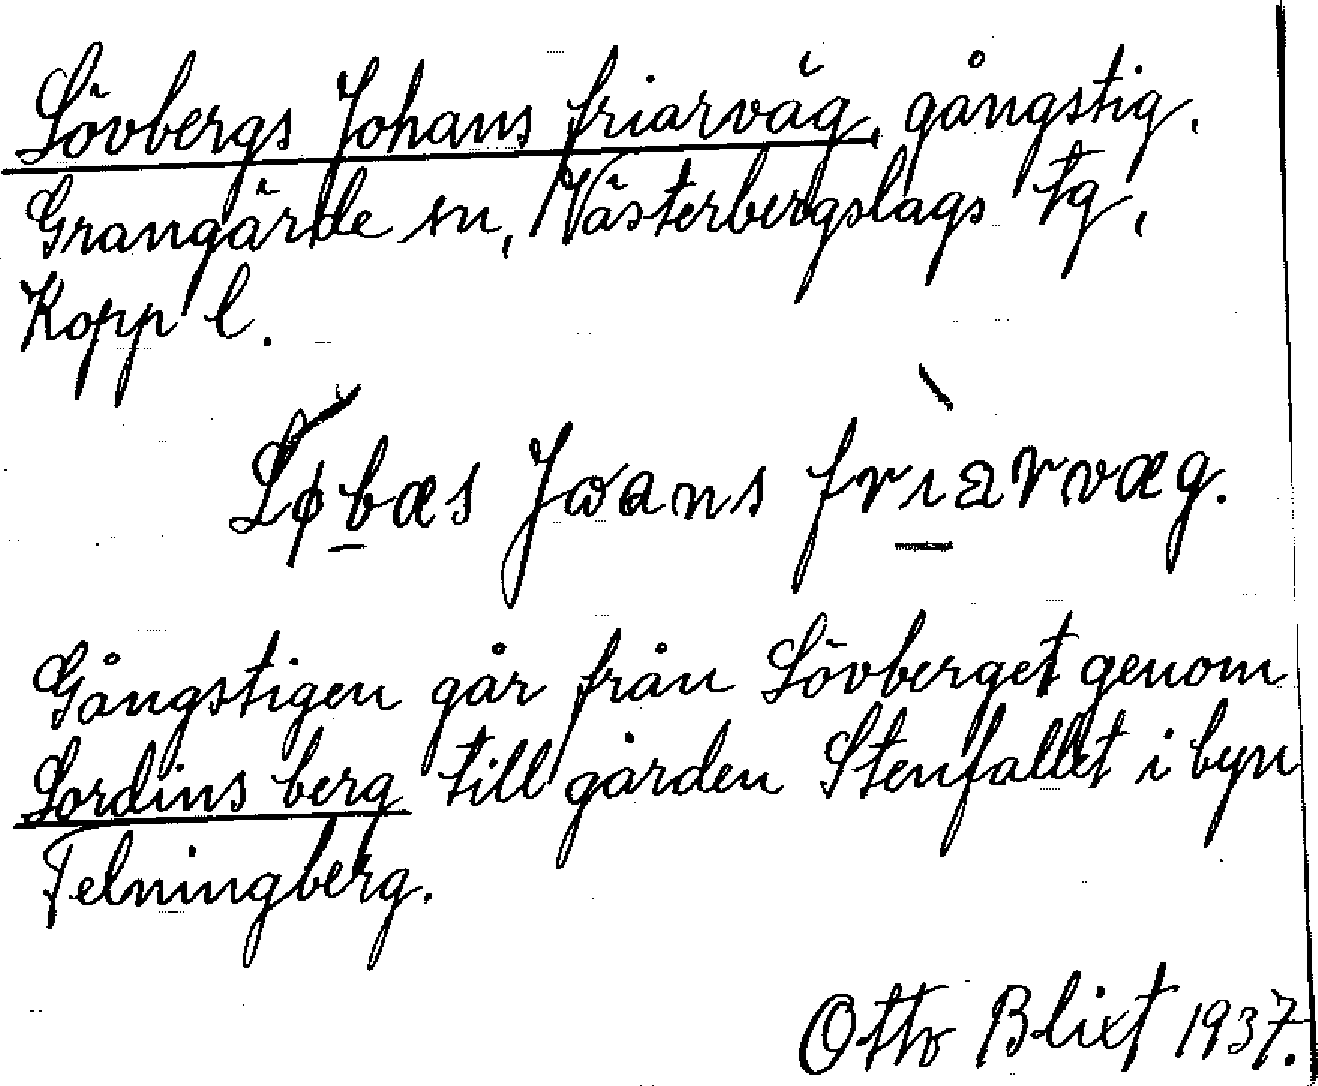 Lövbergs Johans friarväg, gångstig.
Grangärde sn, Västerbergslags tg,
Kopp l.
Løbæs Joans friarvæg.
Gångstigen går från Lövberget genom
Lordins berg till gården Stenfallet i byn
Telningberg.
Otto Blixt 1937.